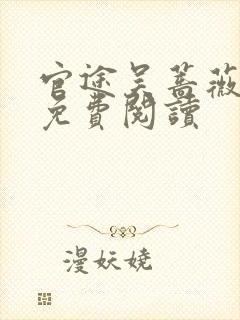 官途吴蔷薇
免費閱讀
漫妖娆